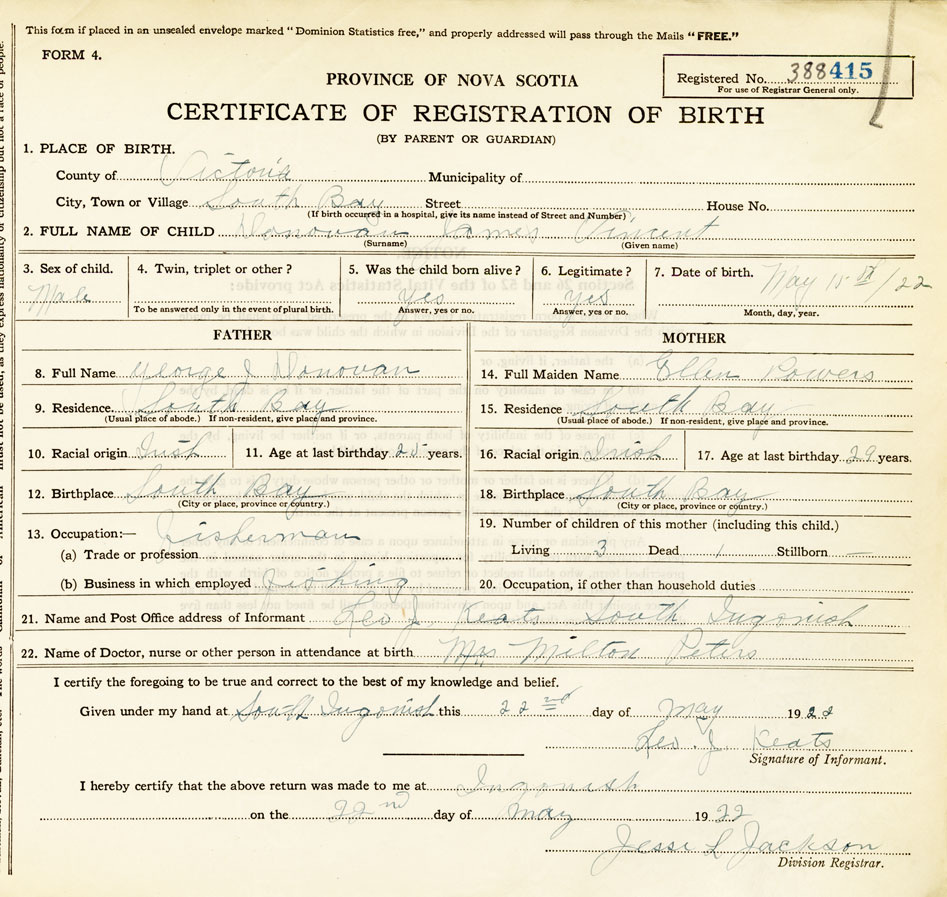 This form if placed in an unsealed envelope marked "Dominion Statistics free," and properly addressed will pass through the Mails "FREE."
FORM 4.
Registered No. 388415
For use of Registrar General only.
PROVINCE OF NOVA SCOTIA
CERTIFICATE OF REGISTRATION OF BIRTH
(BY PARENT OR GUARDIAN)
1. PLACE OF BIRTH.
County of Victoria Municipality of
City, Town or Village South Bay Street House No.
(If birth occurred in a hospital, give its name instead of Street and Number)
2. FULL NAME OF CHILD Donovan James Vincent
(Surname) (Given name)
3. Sex of child. Male
4. Twin, triplet or other?
To be answered only in the event of plural birth.
5. Was the child born alive? Yes
Answer, yes or no.
6. Legitimate? Yes
Answer, yes or no.
7. Date of birth. May 15th/22
Month, day, year.
FATHER
8. Full Name George J Donovan
9. Residence South Bay
(Usual place of abode.) If non-resident, give place and province.
10. Racial origin Irish 11. Age at last birthday 25 years.
12. Birthplace South Bay
(City or place, province or country.)
13. Occupation:— Fisherman
(a) Trade or profession
(b) Business in which employed Fishing
MOTHER
14. Full Maiden Name Ellen Powers
15. Residence South Bay
(Usual place of abode.) If non-resident, give place and province.
16. Racial origin Irish 17. Age at last birthday 29 years.
18. Birthplace South Bay
(City or place, province or country.)
19. Number of children of this mother (including this child.)
Living 3 Dead 1 Stillborn —
20. Occupation, if other than household duties
21. Name and Post Office address of Informant Leo J. Keats South Ingonish
22. Name of Doctor, nurse or other person in attendance at birth Mrs Milton Peters
I certify the foregoing to be true and correct to the best of my knowledge and belief.
Given under my hand at South Ingonish this 22nd day of May 1922
Leo. J. Keats
Signature of Informant.
I hereby certify that the above return was made to me at Ingonish
on the 22nd day of May 1922
Jesse L Jackson
Division Registrar.